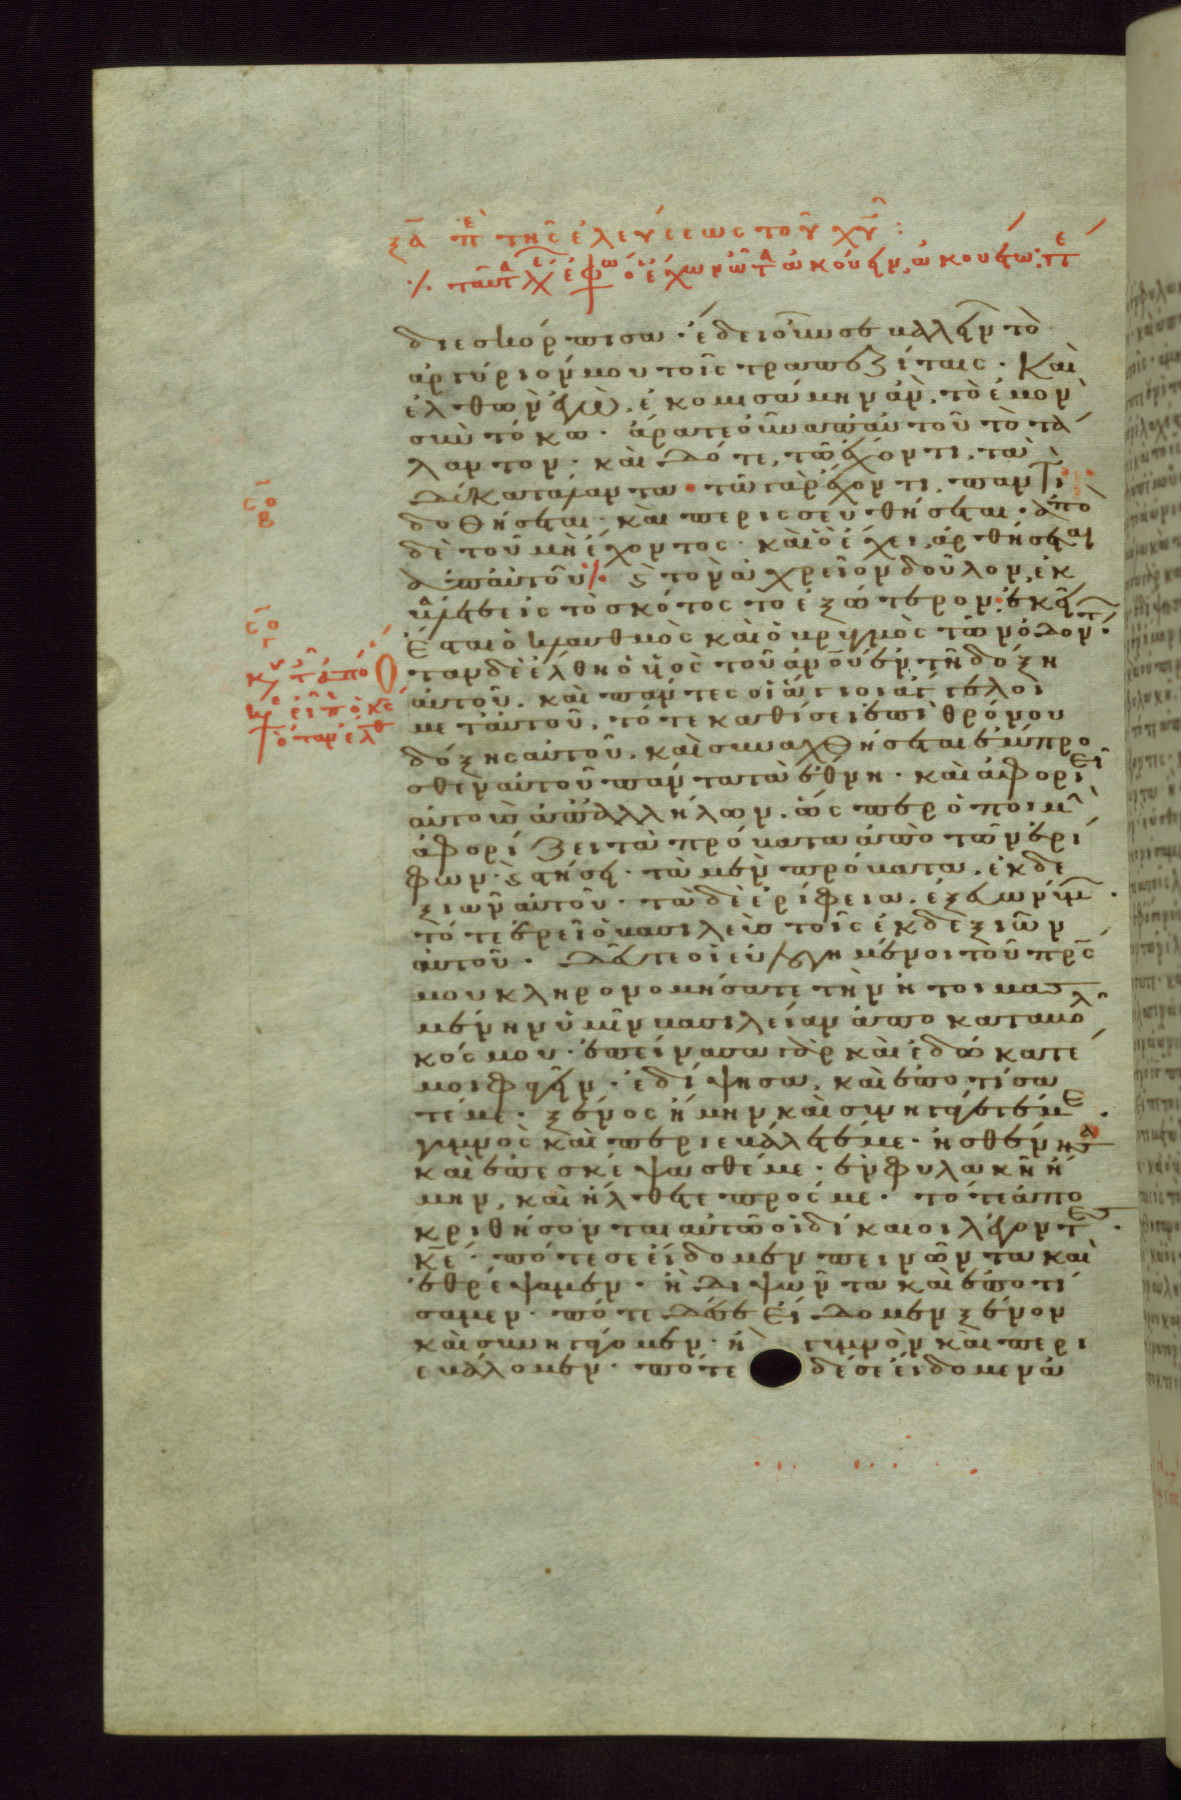 ξ̅α̅ πε τῆς ἐλεύσεως τοῦ χυ̅ :
·/· ταῦτα λέγ ἐφώ ὁ ἔχων ὦτα ἀκούειν, ἀκουέτω: τε
διεσκόρπισα· ἔδει οὖν σε βαλεῖν τὸ
ἀργύριόν μου τοῖς τραπεζίταις. Καὶ
ἐλθὼν ἐγὼ, ἐκομισάμην ἂν, τὸ ἐμὸν
σὺν τόκω· ἄρατε οὖν ἀπ' αὐτοῦ τὸ τά
λαντον· καὶ δότε, τῶ ἔχοντι, τὰ
δέκα τάλαντα· τῶ γὰρ ἔχοντι, παντὶ
δοθήσεται· καὶ περισσευθήσεται· ἀπὸ
δὲ τοῦ μὴ ἔχοντος· καὶ ὃ ἔχει, ἀρθήσεται
ἀπ' αὐτοῦ ·/· ϛ τὸν ἀχρεῖον δοῦλον, ἐκ
βάλετε εἰς τὸ σκότος τὸ ἐξώτερον· ἐκεῖ
ἔσται ὁ κλαυθμὸς καὶ ὁ βρυγμὸς τῶν ὀδόντ·
Ὅταν δὲ ἔλθη ὁ υἱὸς τοῦ ἀνου ἐν τῆ δόξη
αὐτοῦ, καὶ πάντες οἱ ἅγιοι ἄγγελοι
μετ' αὐτοῦ, τότε καθίσει ἐπὶ θρόνου
δόξης αὐτοῦ, καὶ συναχθήσεται ἔμπρο
σθεν αὐτοῦ πάντα τὰ ἔθνη· καὶ ἀφοριεῖ
αὐτοὺς ἀπ' ἀλλήλων, ὥσπερ ὁ ποιμ
ἀφορίζει τὰ πρόβατα ἀπὸ τῶν ἐρί
φων· ϛ στήσει· τὰ μὲν πρόβατα, ἐκ δε
ξιῶν αὐτοῦ· τὰ δὲ ἐρίφεια, ἐξ εὐωνύμ·
τότε ἐρεῖ ὁ βασιλεὺς τοῖς ἐκ δεξιῶν
αὐτοῦ· δεῦτε οἱ εὐλογημένοι τοῦ πρς
μου κληρονομήσατε τὴν ἡτοιμασ
μένην ὑμῖν βασιλείαν ἀπὸ καταβολ
κόσμου· ἐπείνασα γὰρ καὶ ἐδώκατέ
μοι φαγεῖν· ἐδίψησα, καὶ ἐποτίσα
τέ με· ξένος ἤμην καὶ συνηγάγετέ με·
γυμνὸς καὶ περιεβάλετέ με· ἠσθένησα
καὶ ἐπεσκέψασθέ με· ἐν φυλακῆ ἤ
μην, καὶ ἤλθετε πρός με· τότε ἀπο
κριθήσονται αὐτῶ οἱ δίκαιοι λέγοντες·
κε̅· πότε σε εἴδομεν πεινῶντα καὶ
ἐθρέψαμεν· ἢ διψῶντα καὶ ἐποτί
σαμεν· πότε δέ σε εἴδομεν ξένον
καὶ συνηγάγομεν· ἢ γυμνὸν καὶ περι
εβάλομεν· πότε δέ σε εἴδομεν ἀ
σ̅ο̅
β
σ̅ο̅
γ
κυ τ ἀπό
κρ εἶπ ὁ κς
ὅταν ἔλθ